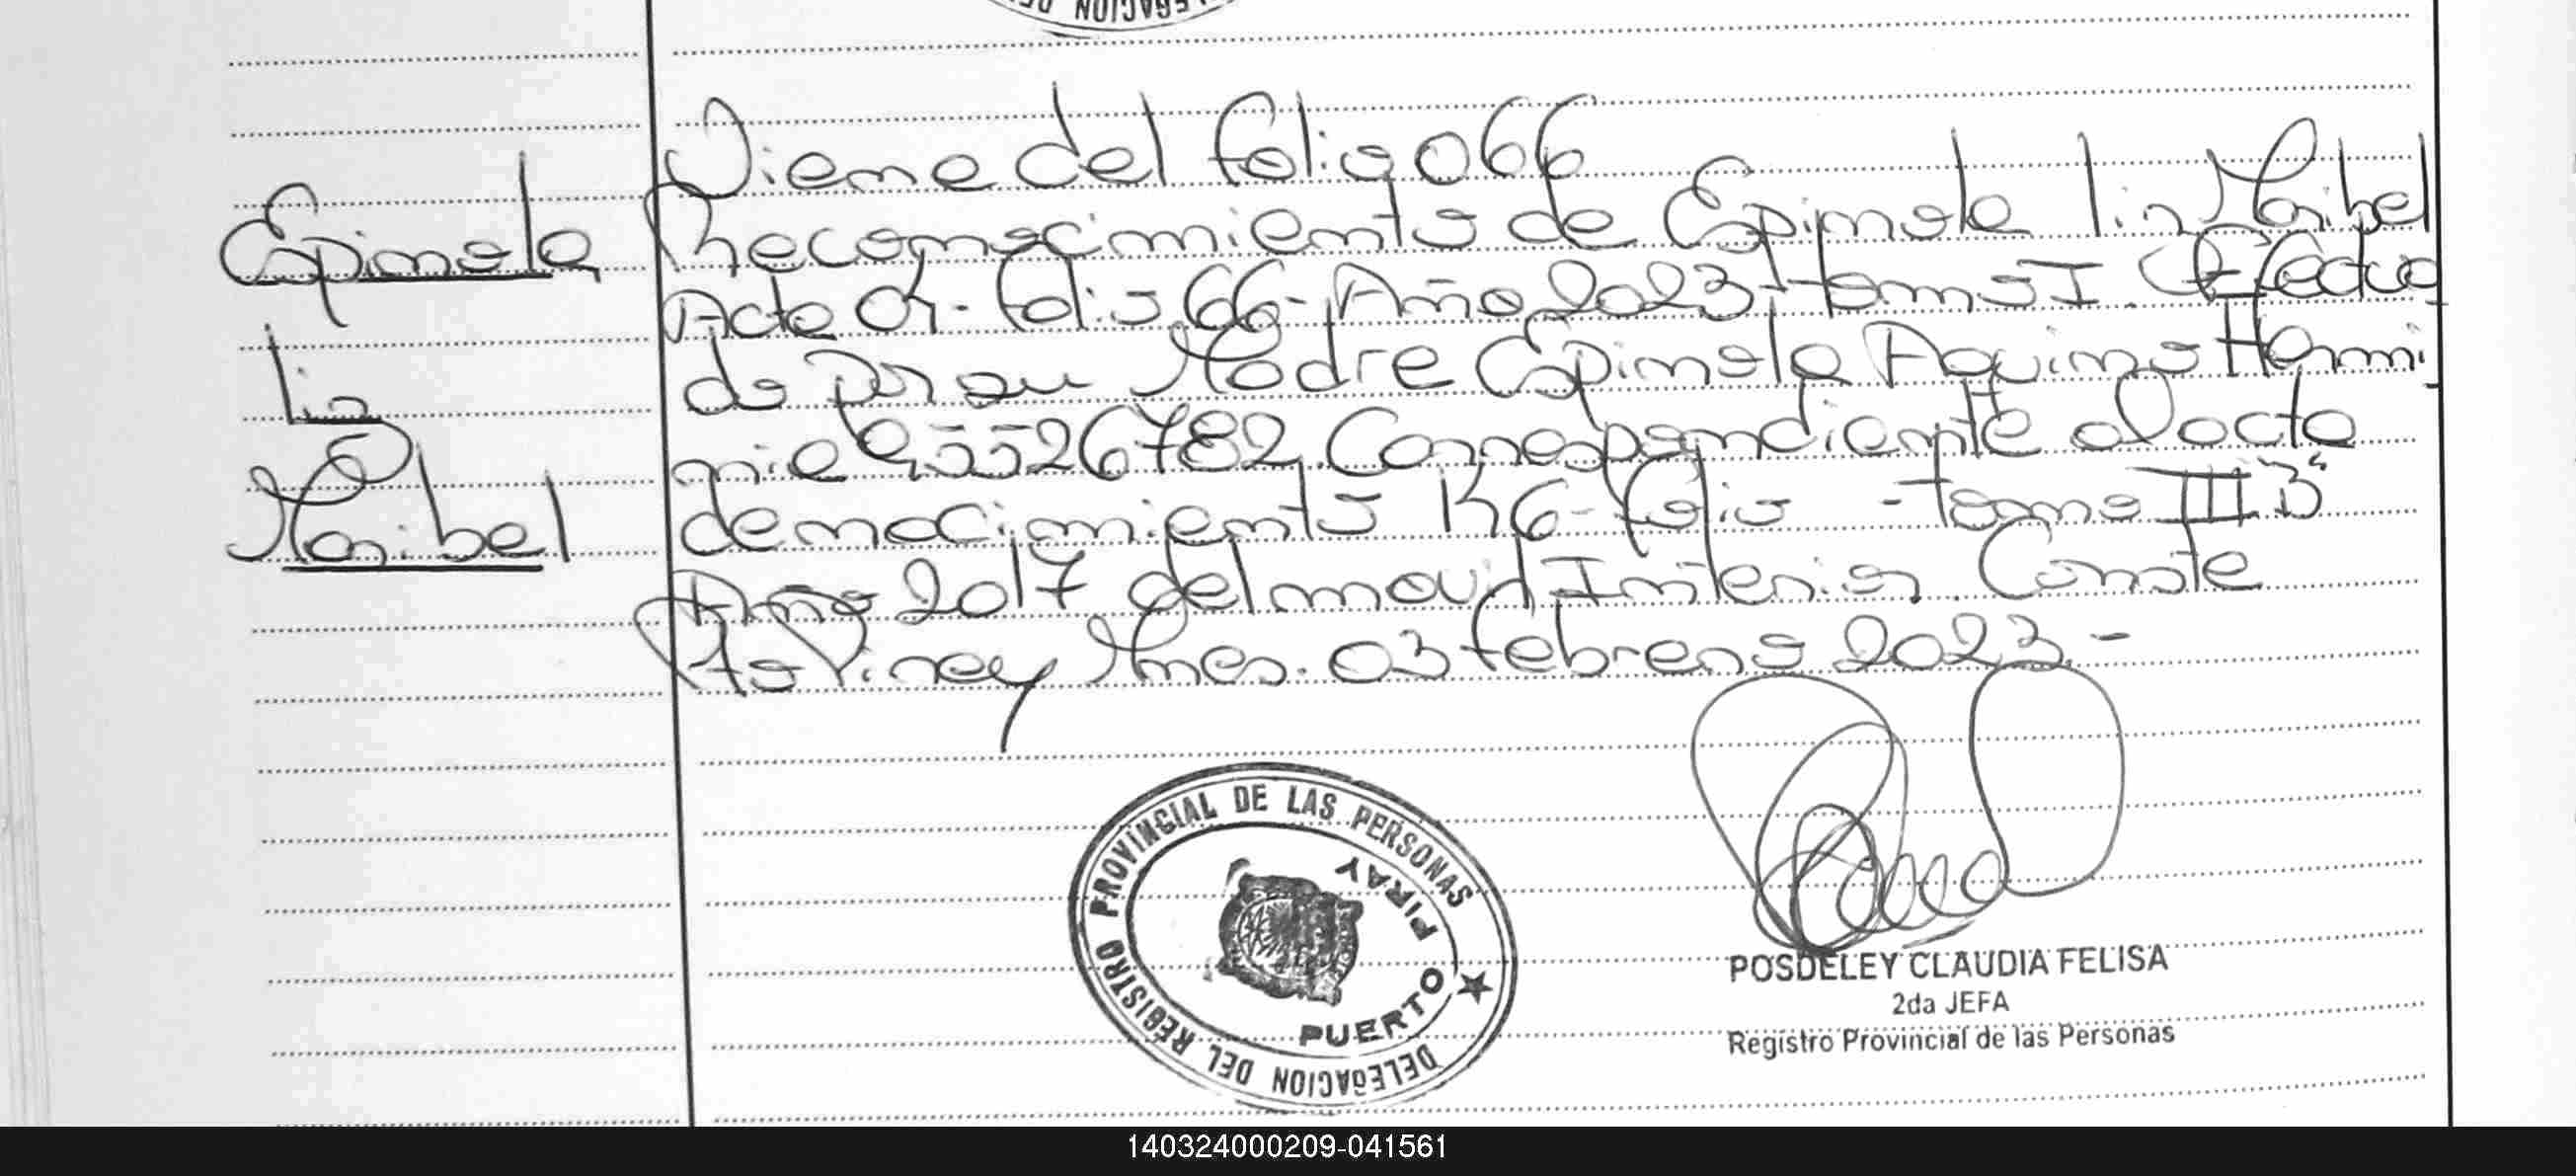 Viene del folio 066
Espinola
Reconocimiento de Espinola Liz Maribel
Acta 04- folio 66- Año 2023- tomo I. Efectua
Liz
do por su Madre Espinola Aquino Hermi
nia 95526782. Correspondiente al acta
Maribel
de nacimiento 136- folio - tomo III B
Año 2017 del movil Interior. Conste
Pto Piray Mnes. 03 febrero 2023.-
DELEGACION DEL REGISTRO PROVINCIAL DE LAS PERSONAS
PUERTO PIRAY
POSDELEY CLAUDIA FELISA
2da JEFA
Registro Provincial de las Personas
140324000209-041561